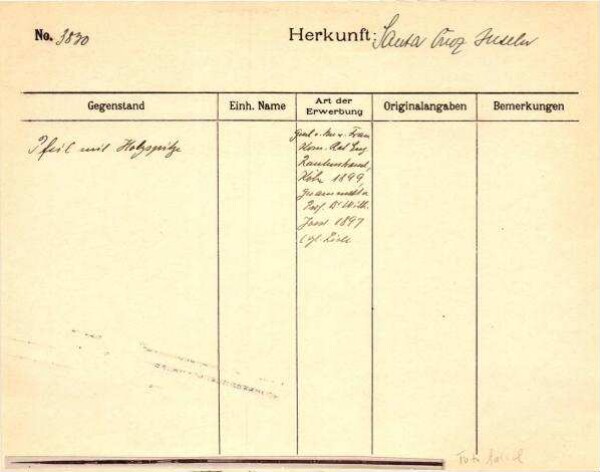 No. 3830
Herkunft: Santa Cruz Inseln
Gegenstand
Einh. Name
Art der
Erwerbung
Originalangaben
Bemerkungen
Pfeil mit Holzspitze
Gesch. v. Frau
Kom. Rat Eug.
Rautenstrauch,
Köln 1899
Prof. Dr Wilh.
Joest 1897